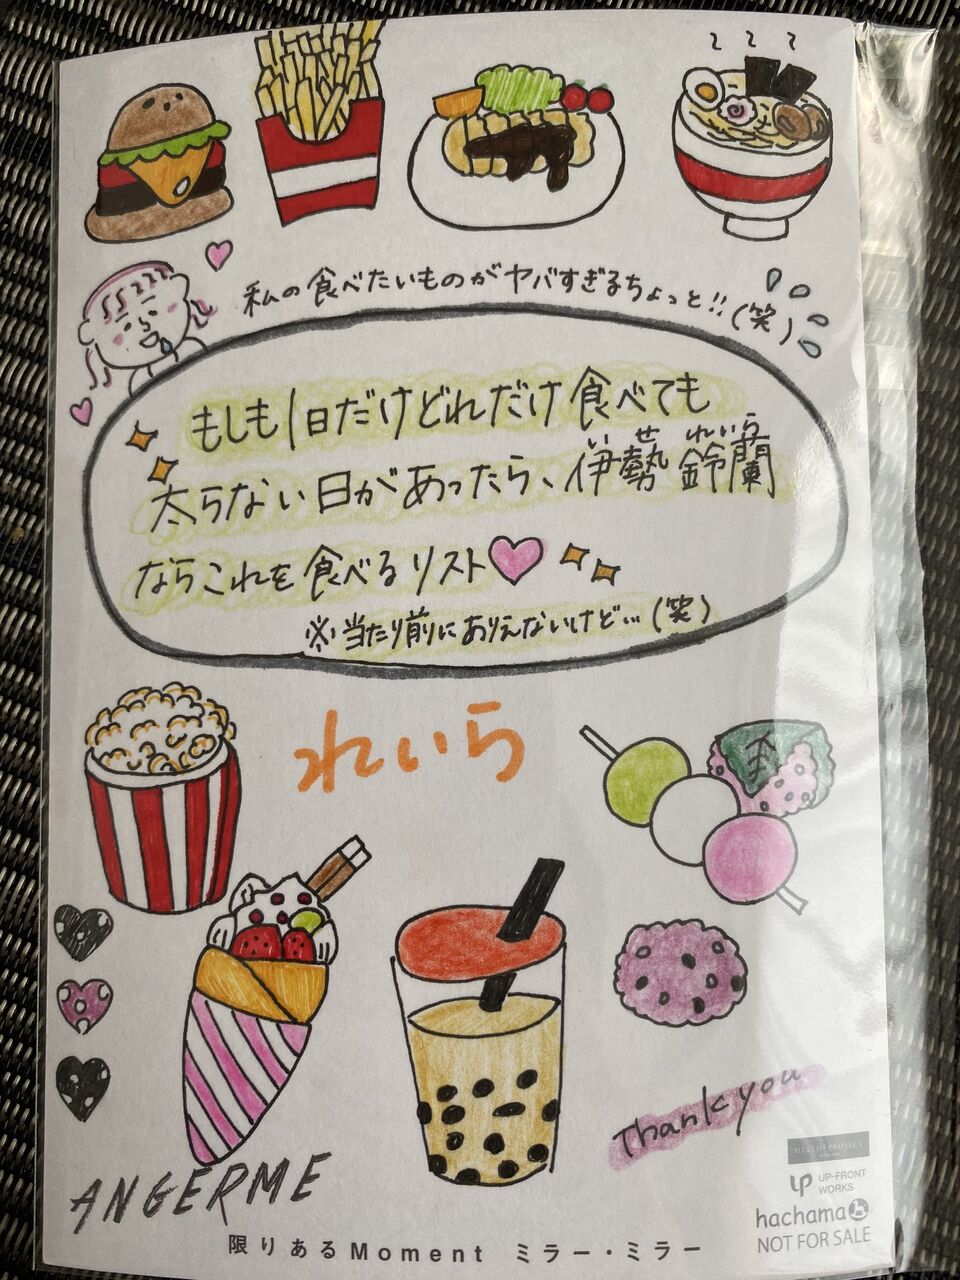 私の食べたいものがヤバすぎるちょっと!!(笑)
もしも1日だけどれだけ食べても
いせ れいら
太らない日があったら、伊勢鈴蘭
ならこれを食べるリスト
※当たり前にありえないけど…(笑)
れいら
Thank you
HELLO! PROJECT
UP-FRONT
WORKS
ANGERME
hachama
NOT FOR SALE
限りあるMoment ミラー・ミラー